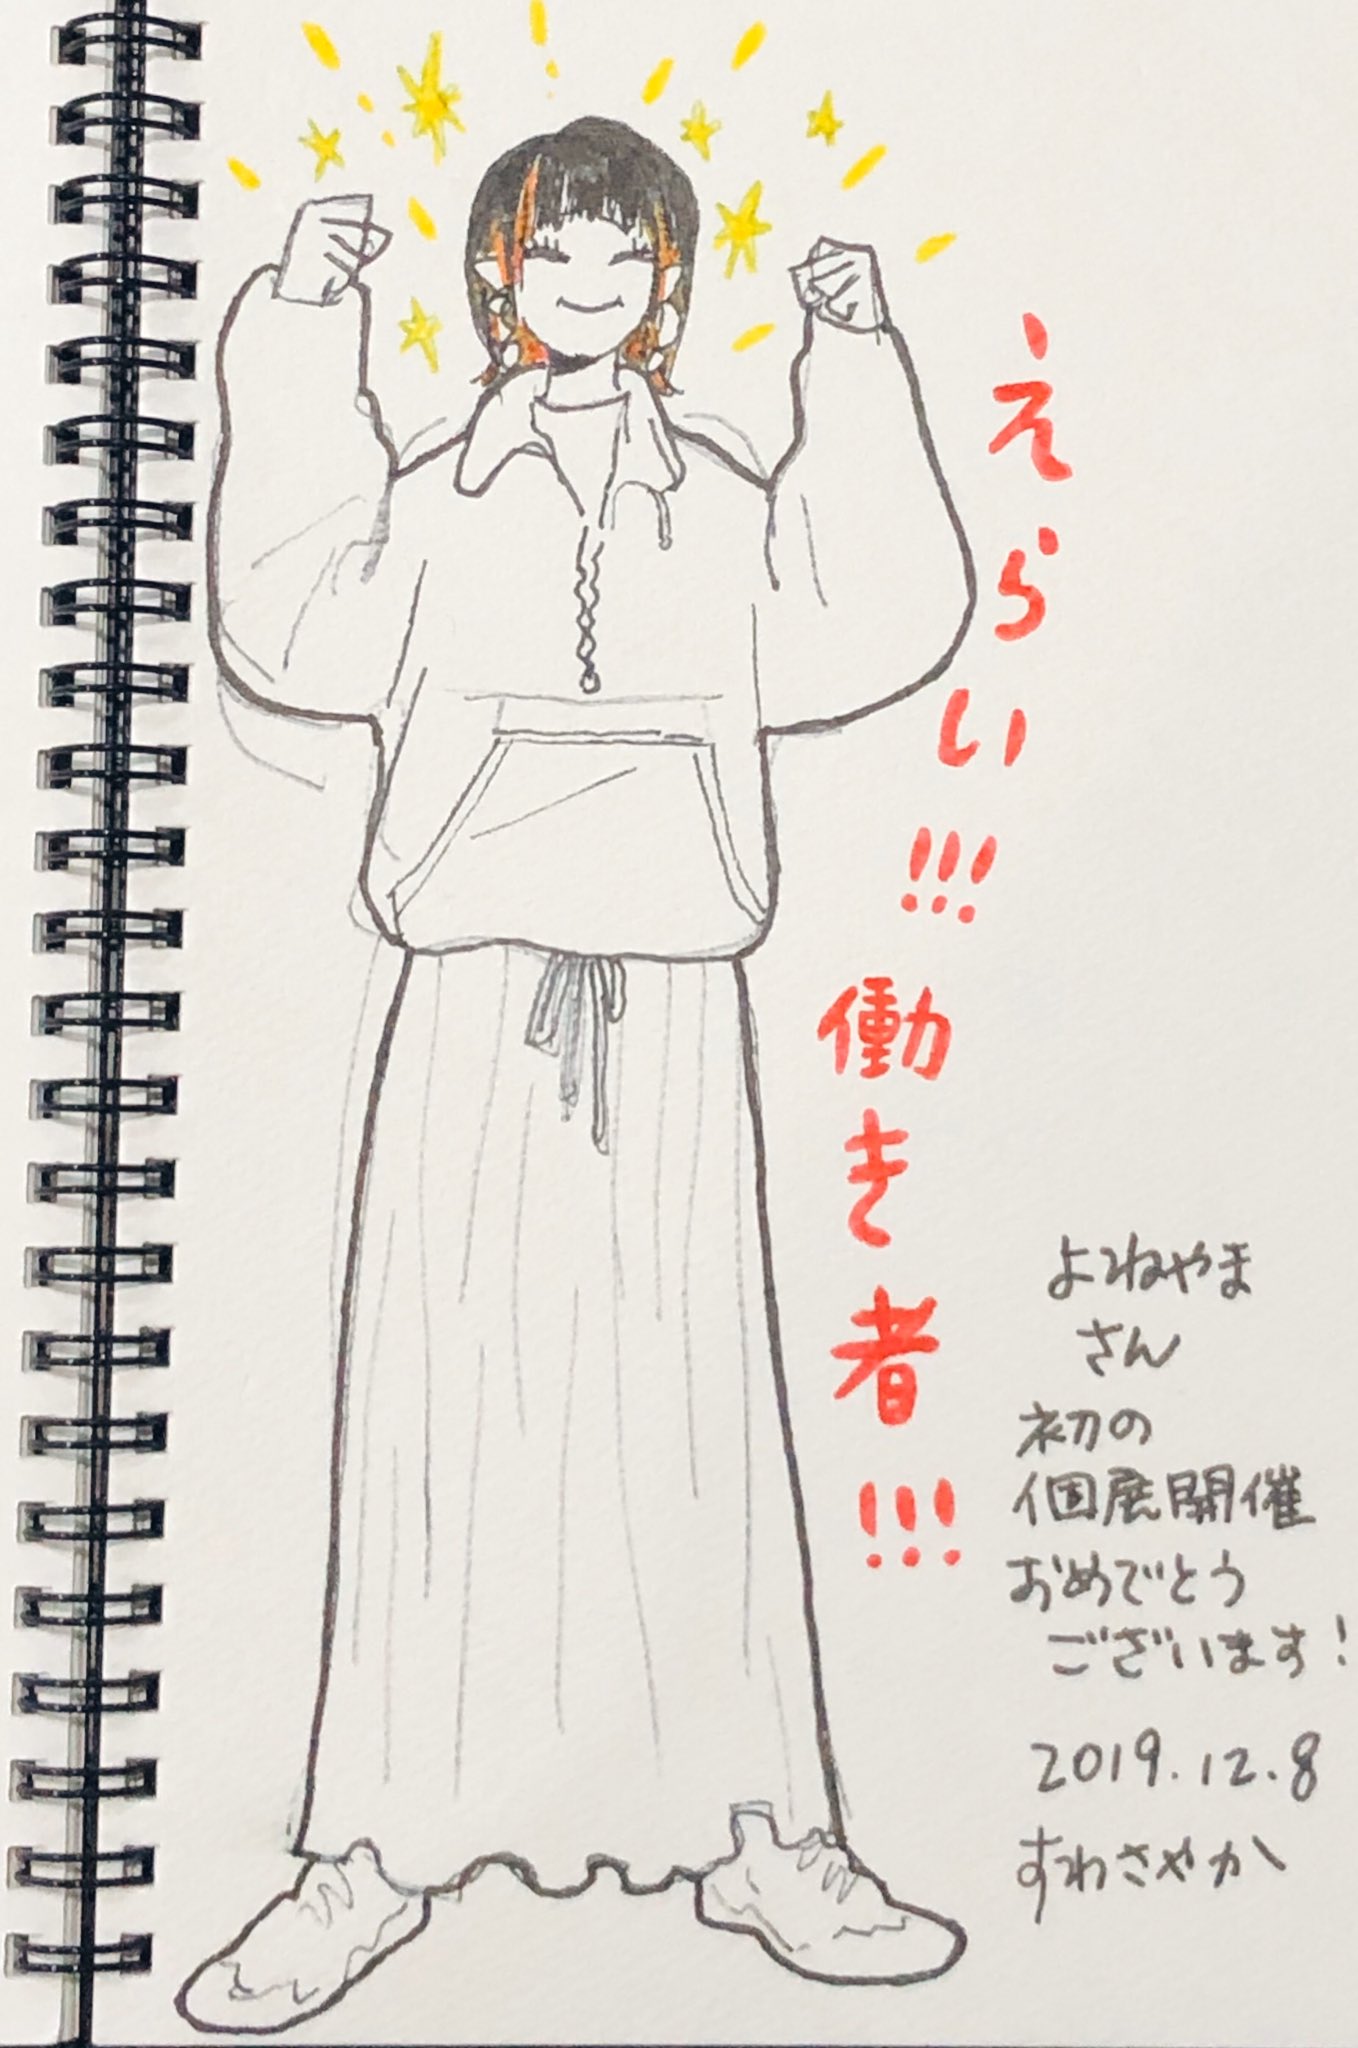 えらい!!!
働き者!!!
よねやま
さん
初の
個展開催
おめでとう
ございます!
2019.12.8
すわさやか